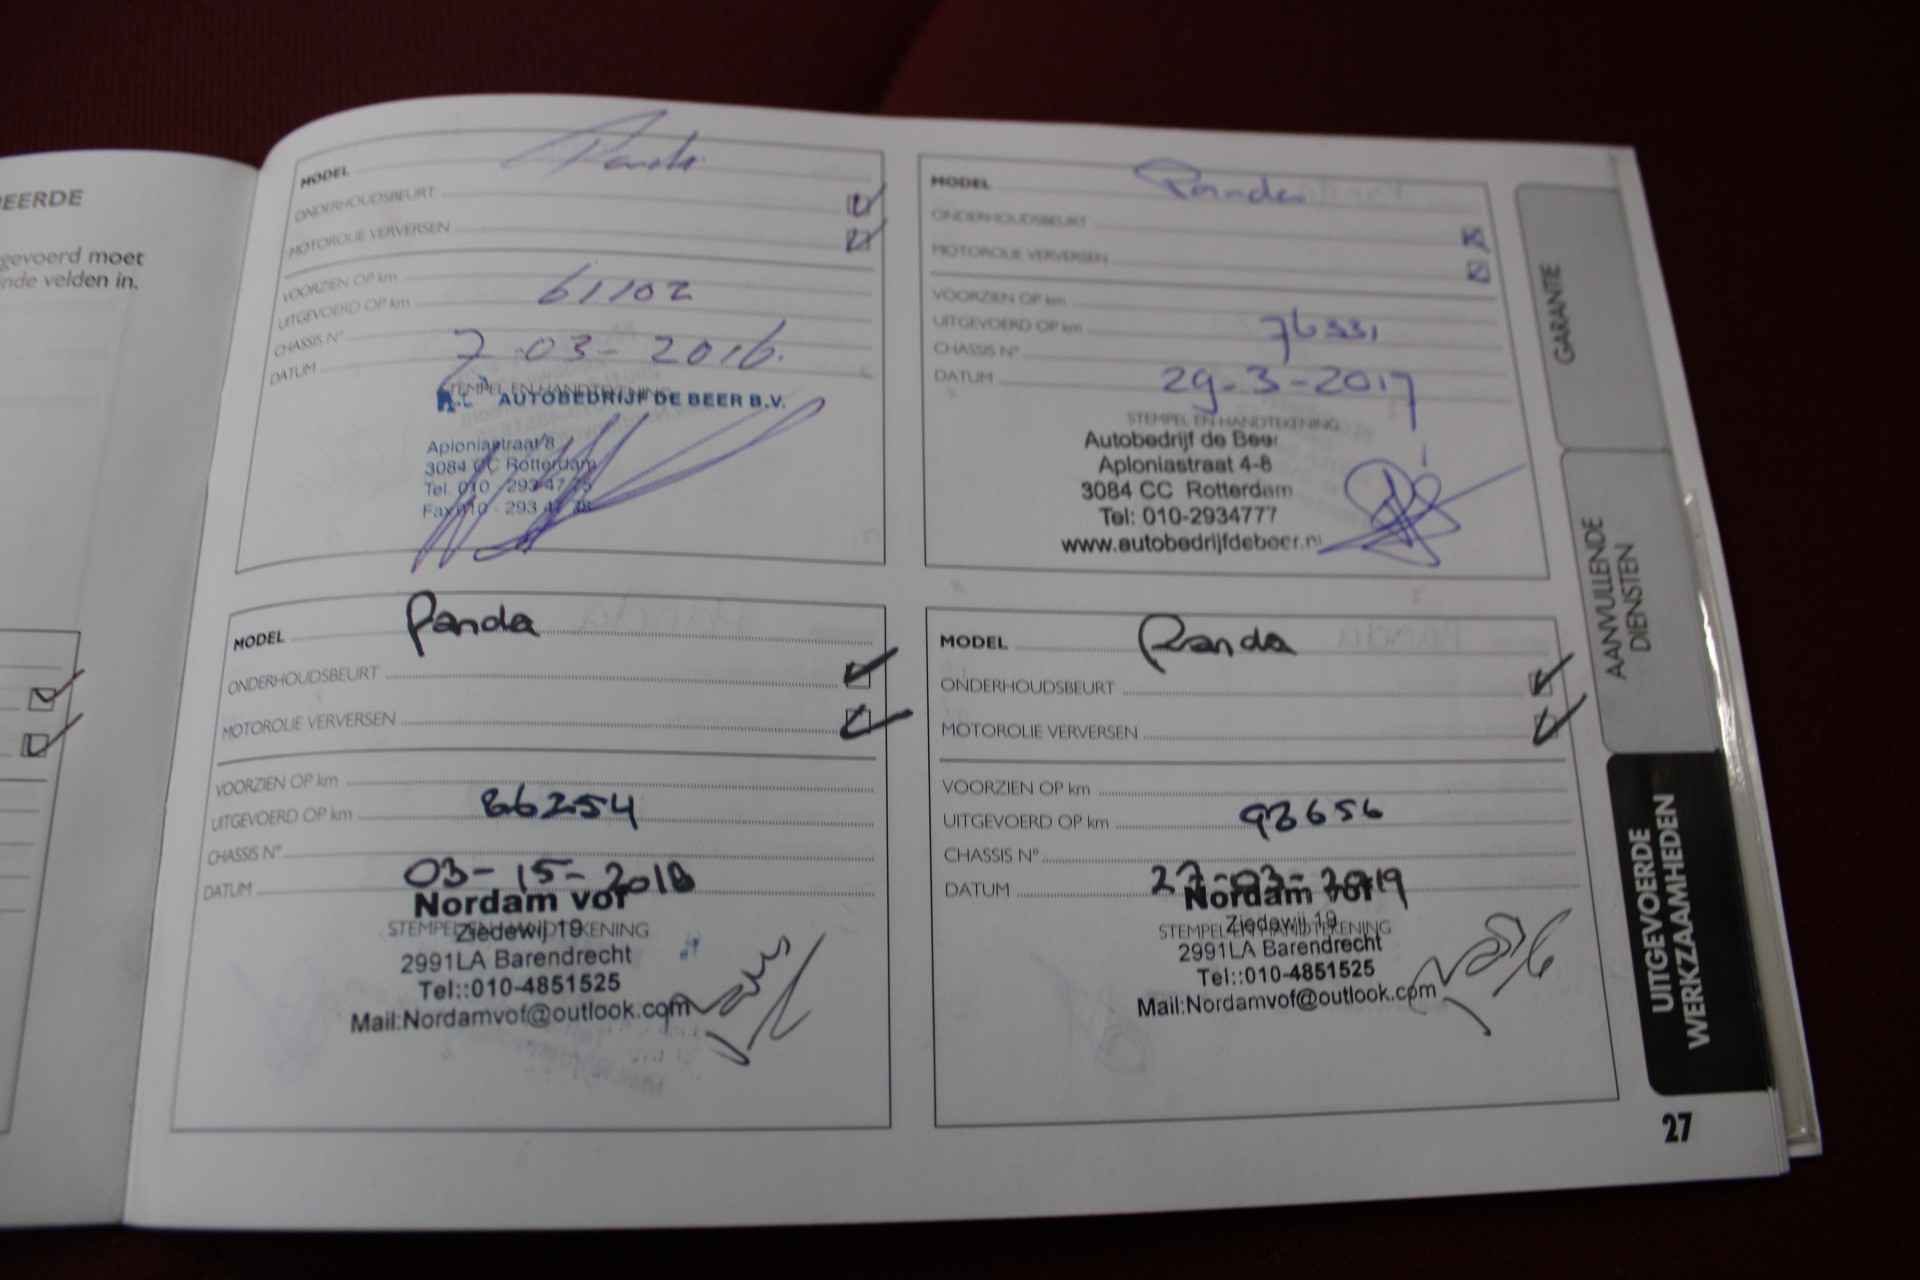 EERDE
gevoerd moet
nde velden in.
MODEL Panda
ONDERHOUDSBEURT
MOTOROLIE VERVERSEN
VOORZIEN OP km
UITGEVOERD OP km 61102
CHASSIS N°
DATUM 7-03-2016.
STEMPEL EN HANDTEKENING
AUTOBEDRIJF DE BEER B.V.
Aploniastraat 8
3084 CC Rotterdam
Tel. 010 - 293 47
Fax 010 - 293 47
MODEL Panda
ONDERHOUDSBEURT
MOTOROLIE VERVERSEN
VOORZIEN OP km
UITGEVOERD OP km 76331
CHASSIS N°
DATUM 29-3-2017
STEMPEL EN HANDTEKENING
Autobedrijf de Beer
Aploniastraat 4-8
3084 CC Rotterdam
Tel: 010-2934777
www.autobedrijfdebeer.nl
MODEL Panda
ONDERHOUDSBEURT
MOTOROLIE VERVERSEN
VOORZIEN OP km
UITGEVOERD OP km 86254
CHASSIS N°
DATUM 03-15-2018
Nordam vof
STEMPEL EN HANDTEKENING
Ziedewij 19
2991LA Barendrecht
Tel::010-4851525
Mail:Nordamvof@outlook.com
MODEL Panda
ONDERHOUDSBEURT
MOTOROLIE VERVERSEN
VOORZIEN OP km
UITGEVOERD OP km 93656
CHASSIS N°
DATUM 27-03-2019
Nordam vof
STEMPEL EN HANDTEKENING
Ziedewij 19
2991LA Barendrecht
Tel::010-4851525
Mail:Nordamvof@outlook.com
GARANTIE
AANVULLENDE
DIENSTEN
UITGEVOERDE
WERKZAAMHEDEN
27